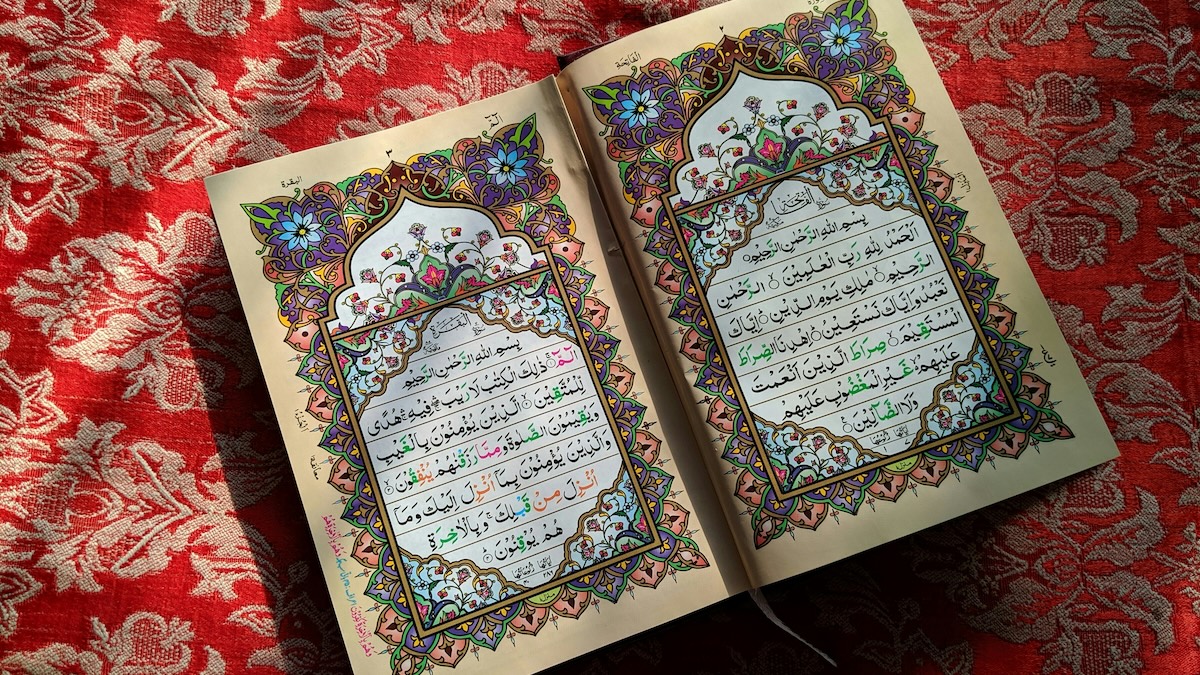 ٢
الفاتحة
الفاتحة
بِسْمِ اللهِ الرَّحْمٰنِ الرَّحِيْمِ
اَلْحَمْدُ لِلّٰهِ رَبِّ الْعٰلَمِيْنَ الرَّحْمٰنِ
الرَّحِيْمِ مٰلِكِ يَوْمِ الدِّيْنِ اِيَّاكَ
نَعْبُدُ وَاِيَّاكَ نَسْتَعِيْنُ اِهْدِنَا الصِّرَاطَ
الْمُسْتَقِيْمَ صِرَاطَ الَّذِيْنَ اَنْعَمْتَ
عَلَيْهِمْ غَيْرِ الْمَغْضُوْبِ عَلَيْهِمْ
وَلَا الضَّآلِّيْنَ
٣
الٓمّٓ
البقرة
البقرة
بِسْمِ اللهِ الرَّحْمٰنِ الرَّحِيْمِ
الٓمّٓ ذٰلِكَ الْكِتٰبُ لَا رَيْبَ فِيْهِ هُدًى
لِّلْمُتَّقِيْنَ الَّذِيْنَ يُؤْمِنُوْنَ بِالْغَيْبِ
وَيُقِيْمُوْنَ الصَّلٰوةَ وَمِمَّا رَزَقْنٰهُمْ يُنْفِقُوْنَ
وَالَّذِيْنَ يُؤْمِنُوْنَ بِمَآ اُنْزِلَ اِلَيْكَ وَمَآ
اُنْزِلَ مِنْ قَبْلِكَ وَبِالْاٰخِرَةِ
هُمْ يُوْقِنُوْنَ